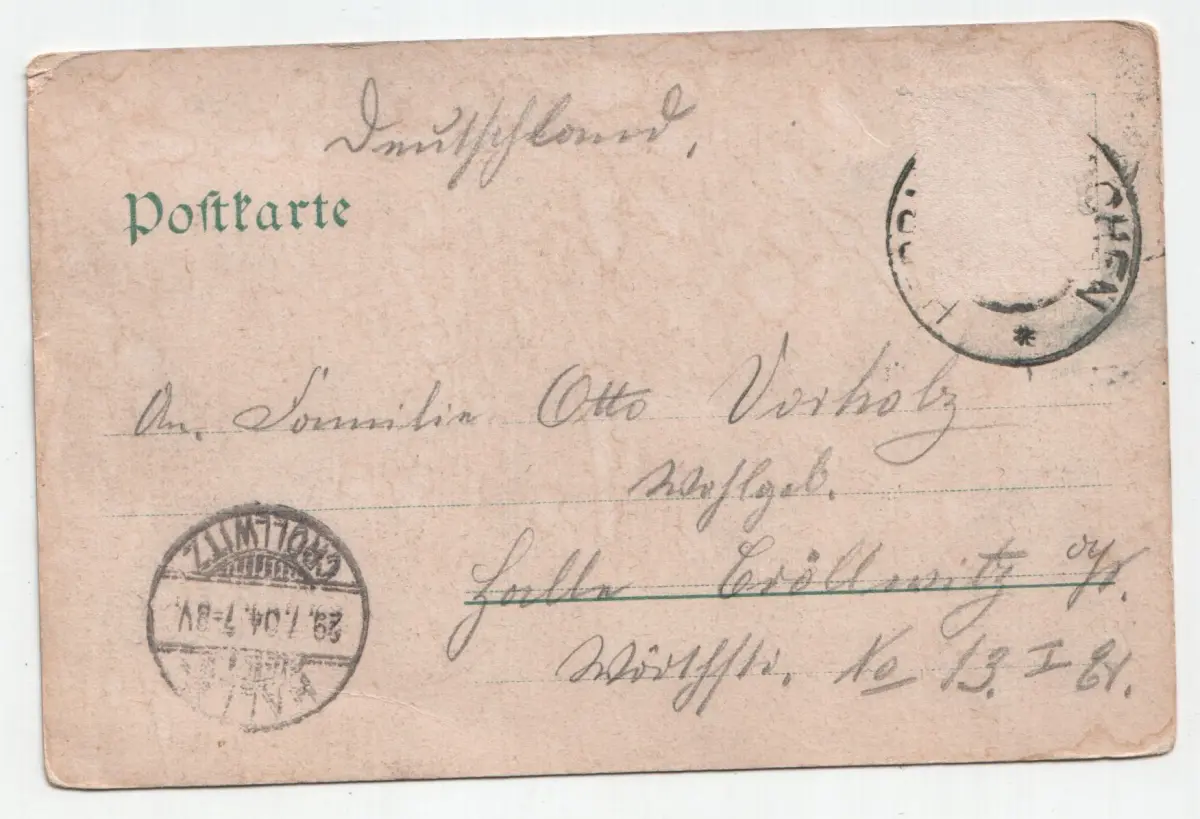 Deutschland,
Postkarte
CHEN
*
An. Familie Otto Vorholz
Wohlgeb.
Halle Cröllwitz
Wörthstr. No 13. I Et.
CRÖLLWITZ
29.7.04. 7-8V.